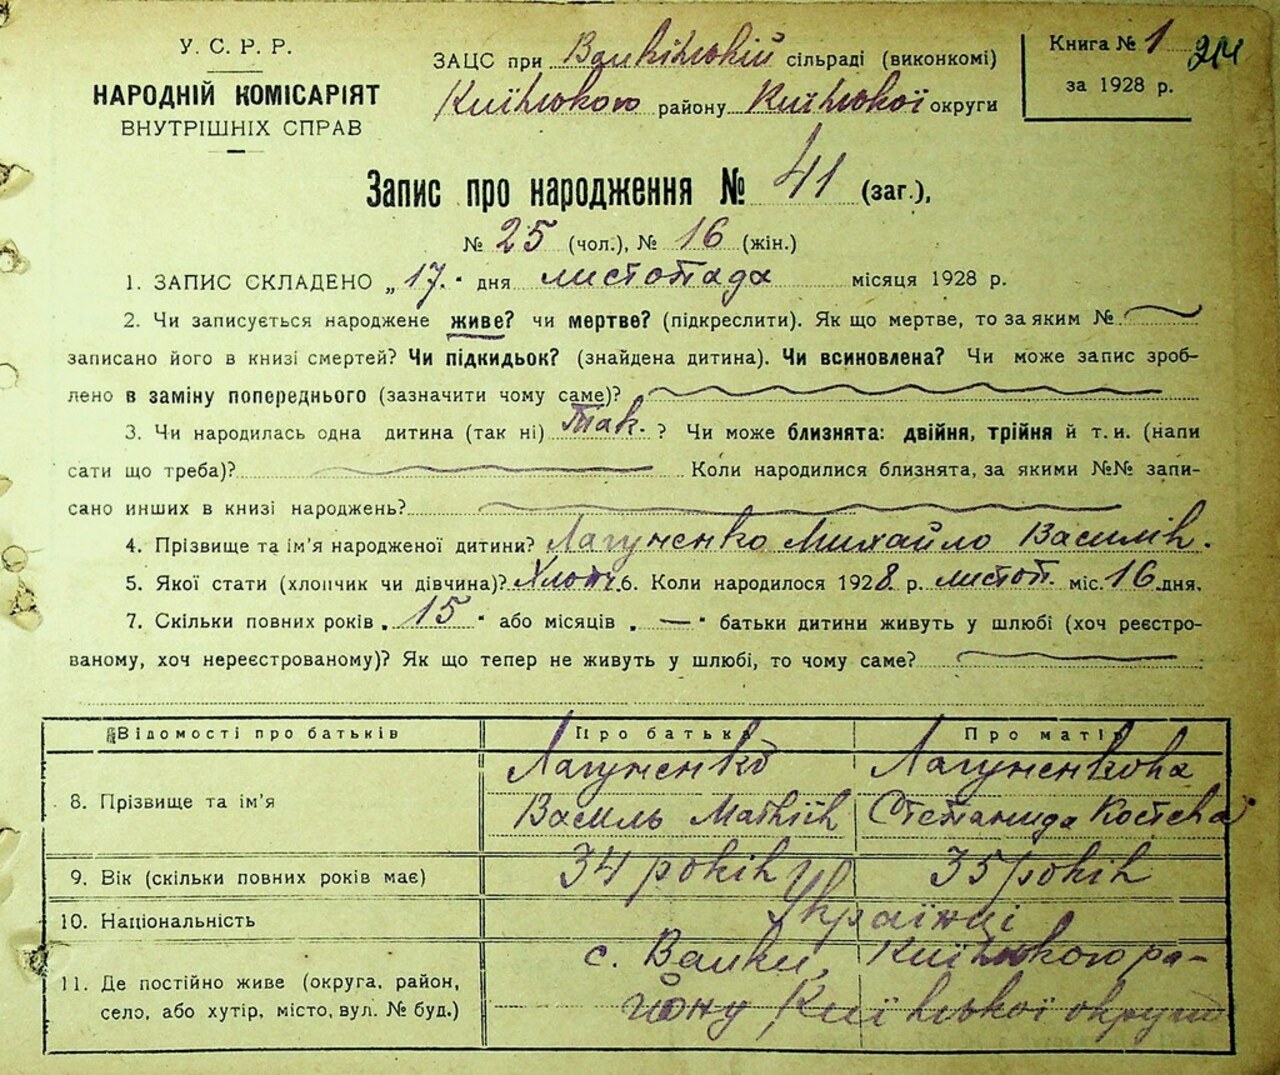 У. С. Р. Р.
НАРОДНІЙ КОМІСАРІЯТ
ВНУТРІШНІХ СПРАВ
ЗАЦС при Валківській сільраді (виконкомі)
Київського району Київської округи
Книга № 1 214
за 1928 р.
Запис про народження № 41 (заг.),
№ 25 (чол.), № 16 (жін.)
1. ЗАПИС СКЛАДЕНО „17." дня листопада місяця 1928 р.
2. Чи записується народжене живе? чи мертве? (підкреслити). Як що мертве, то за яким №
записано його в книзі смертей? Чи підкидьок? (знайдена дитина). Чи всиновлена? Чи може запис зроб-
лено в заміну попереднього (зазначити чому саме)?
3. Чи народилась одна дитина (так ні) Так. ? Чи може близнята: двійня, трійня й т. и. (напи
сати що треба)? Коли народилися близнята, за якими №№ запи-
сано инших в книзі народжень?
4. Прізвище та ім'я народженої дитини? Лагуненко Михайло Василів.
5. Якої стати (хлопчик чи дівчина)? Хлопч. 6. Коли народилося 1928. р. листоп. міс. 16 дня.
7. Скільки повних років „ 15 " або місяців „ — " батьки дитини живуть у шлюбі (хоч реєстро-
ваному, хоч нереєстрованому)? Як що тепер не живуть у шлюбі, то чому саме?
Відомості про батьків Про батька Про матір
8. Прізвище та ім'я Лагуненко Василь Матвіїв Лагуненкова Степанида Костева
9. Вік (скільки повних років має) 34 років 35 років
10. Національність Українці
11. Де постійно живе (округа, район,
село, або хутір, місто, вул. № буд.)
с. Валки, Київського ра-
йону Київської округи